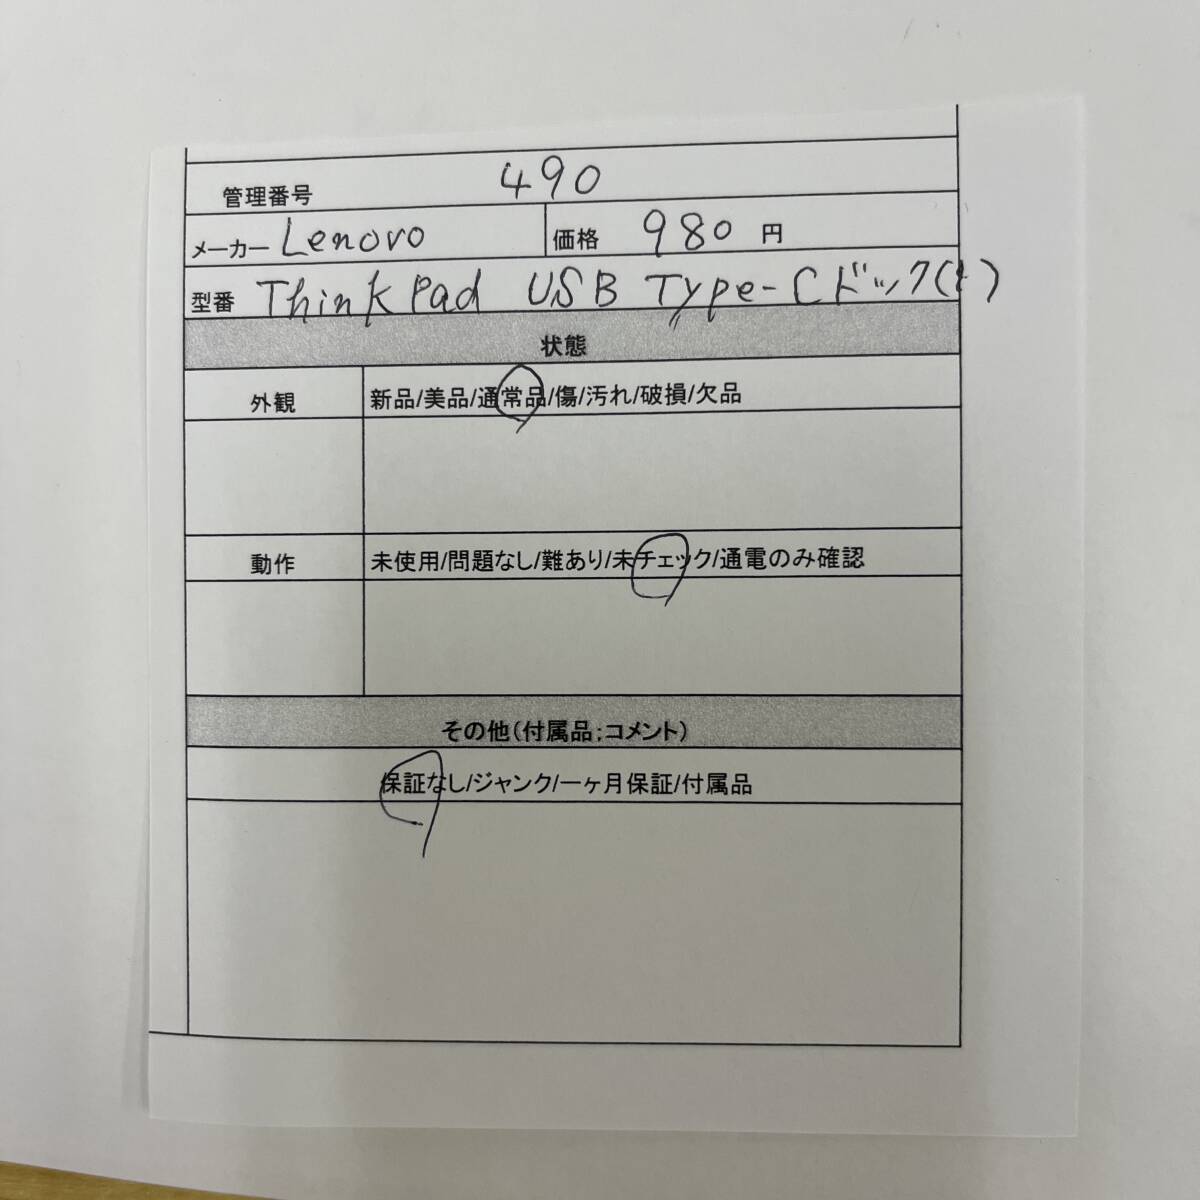 管理番号 490
メーカー Lenovo 価格 980 円
型番 ThinkPad USB Type-Cドック
状態
外観 新品/美品/通常品/傷/汚れ/破損/欠品
動作 未使用/問題なし/難あり/未チェック/通電のみ確認
その他(付属品;コメント)
保証なし/ジャンク/一ヶ月保証/付属品